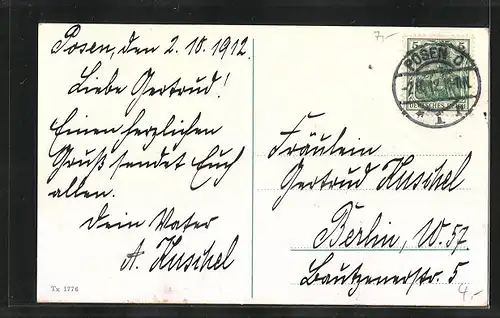 Posen, den 2.10.1912.
Liebe Gertrud!
Einen herzlichen
Gruß sendet Euch
allen.
Dein Vater
A. Kuschel
Tx 1776
7,-
5 5
POSEN O
1
DEUTSCHES
Fräulein
Gertrud Kuschel
Berlin, W. 57.
Bautzenerstr. 5
4,-